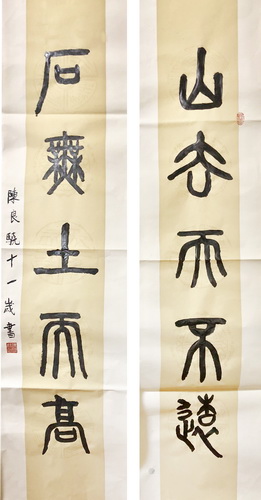 山去而不遠
石無土而高
陳良駪十一歲書